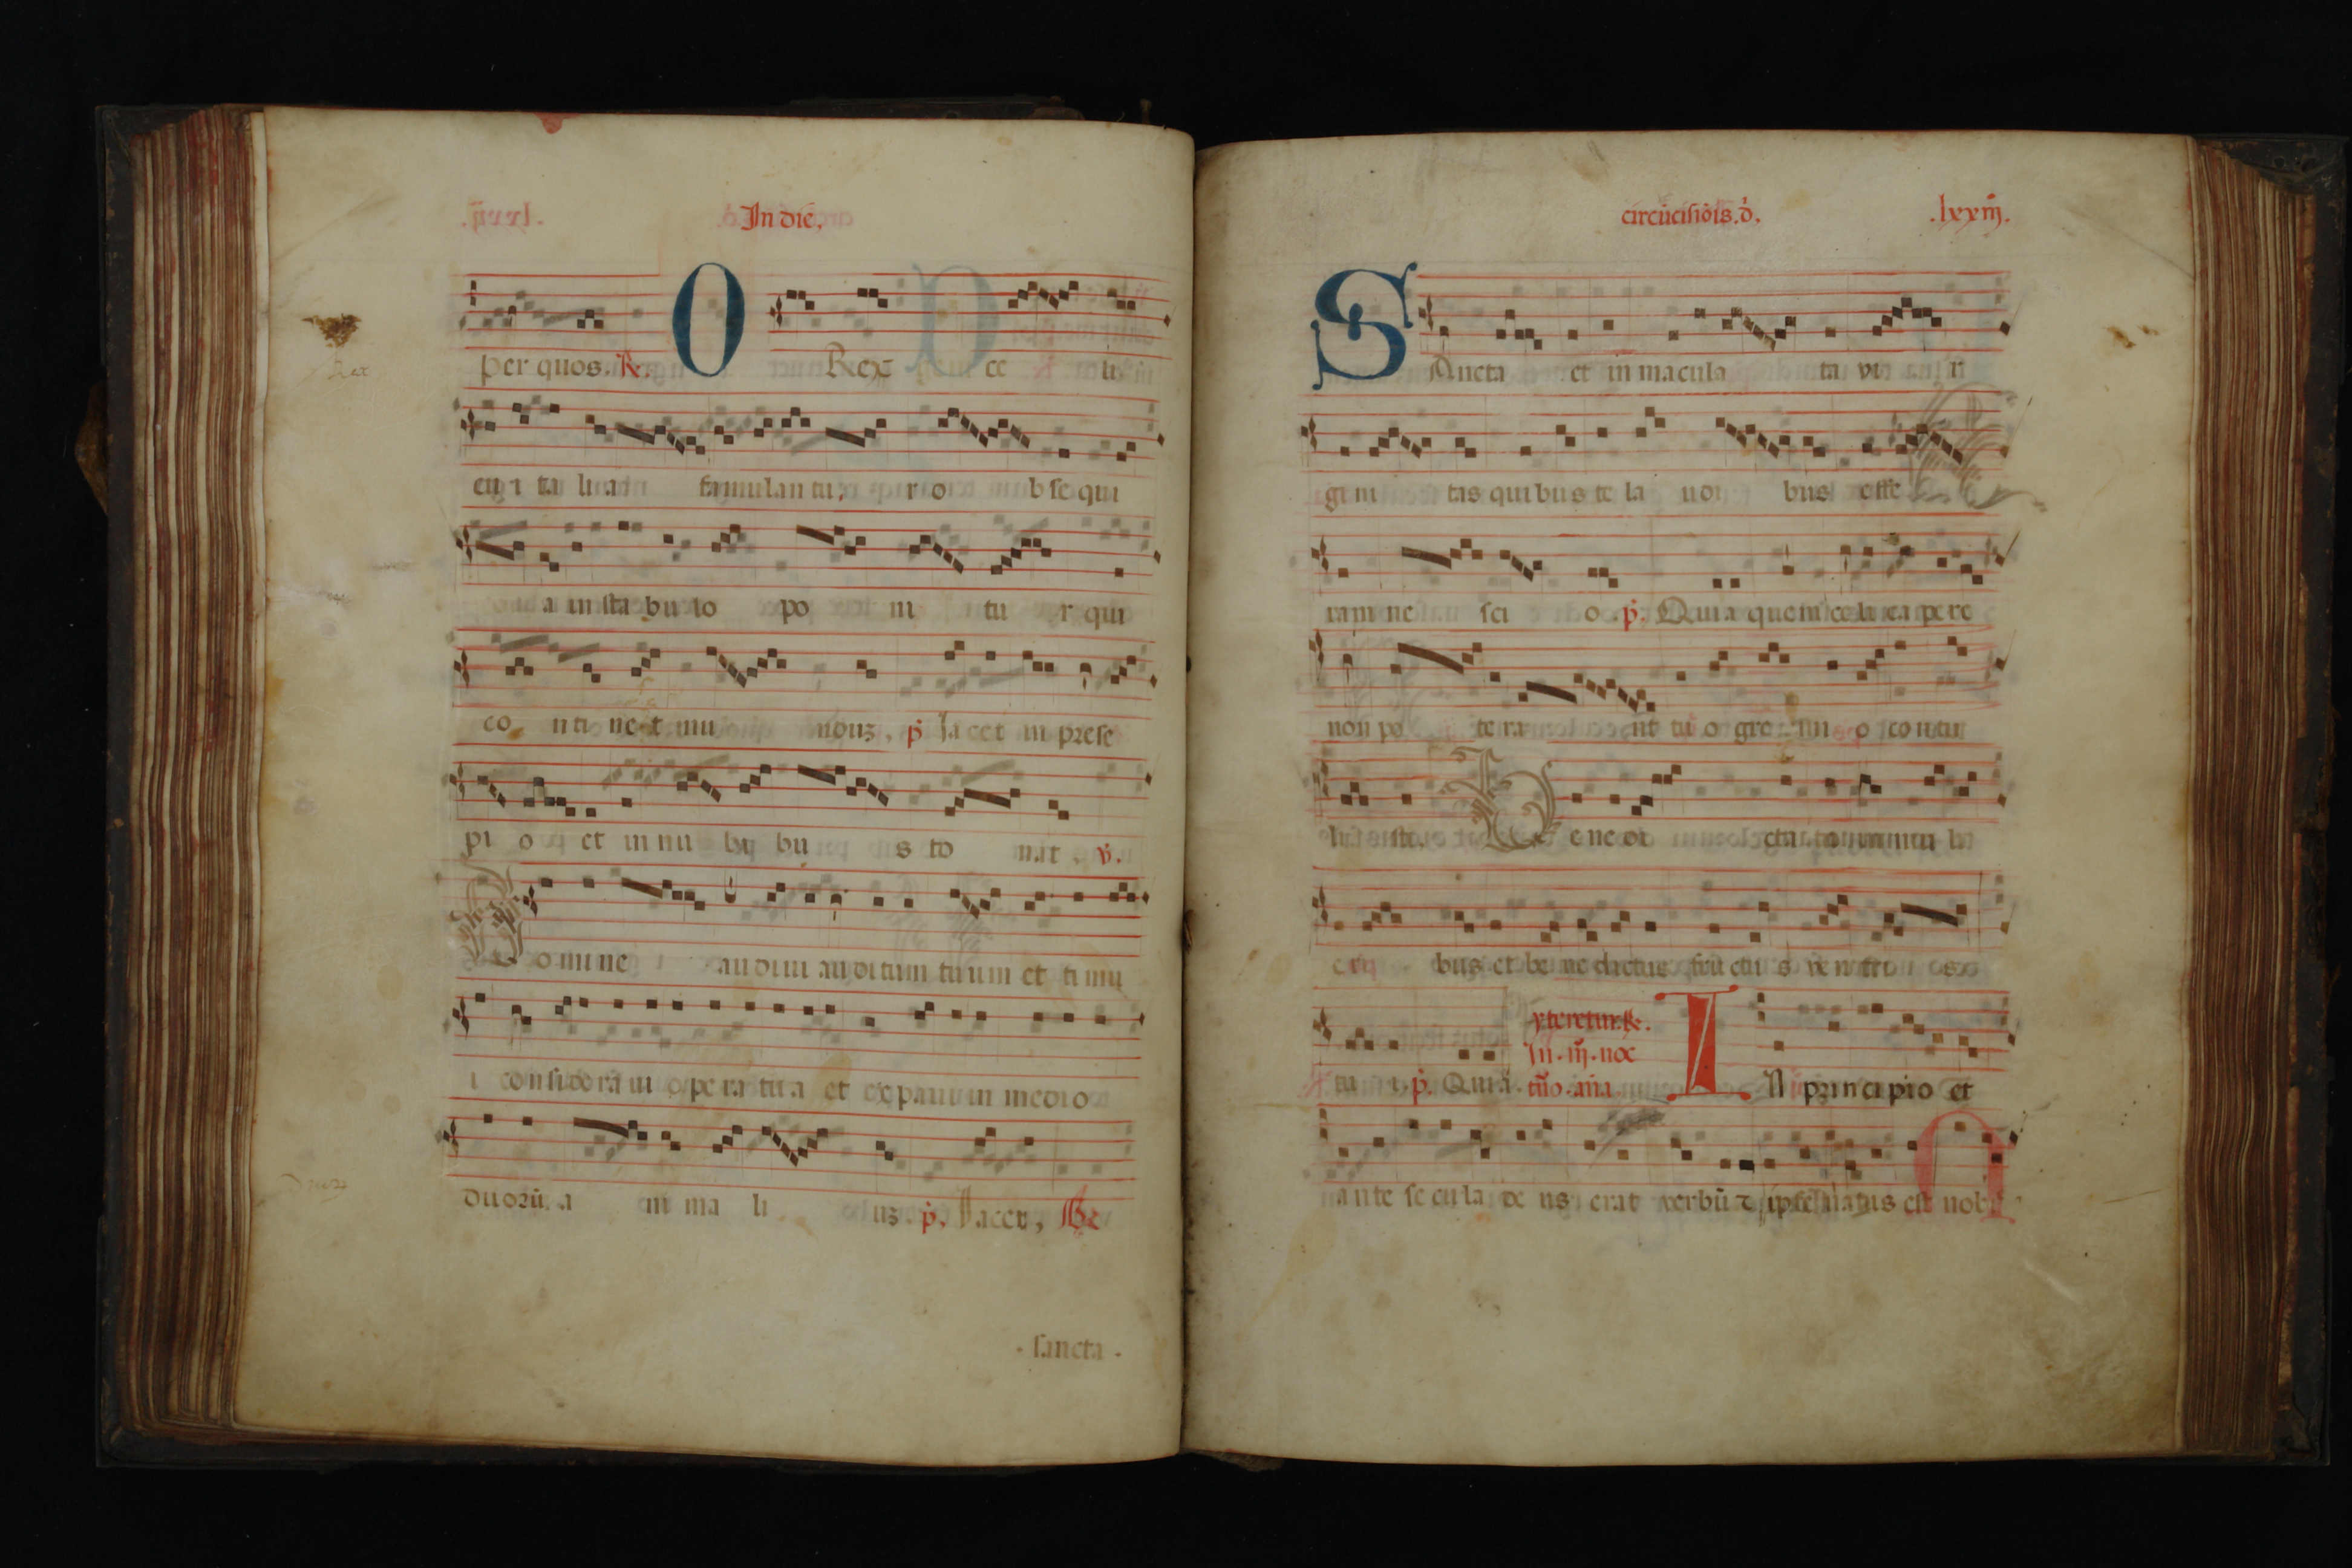 In die,
per quos. R. O Rex ce li
cui ta lia famulantur o bse qui
a in sta bu lo po ni tu r qui
co nti ne t mu nduz, p. Jacet in prese
pi o et in nu bi bu s to nat. v.
Domine audiui auditum tuum et timu
i consideraui opera tua et expaui in medio
duorū a ni ma li uz. p. Jacet, Re
. sancta .
circūcisiōis. d. .lxxiij.
SAncta et in macula ta vi r
gi ni tas quibus te la udi bus effe
ram ne sci o. p. Quia quem celi capere
non po tera nt tu o gre mi o contu
listi. Benedi cta tu in mu li
eri bus et be ne dictus fructus ventri s
tu i. p. Quia. yteretur. R.
In. iij. noc
tuo. ana. IN principio et
ante secula de us erat verbū z ipse natus est nob